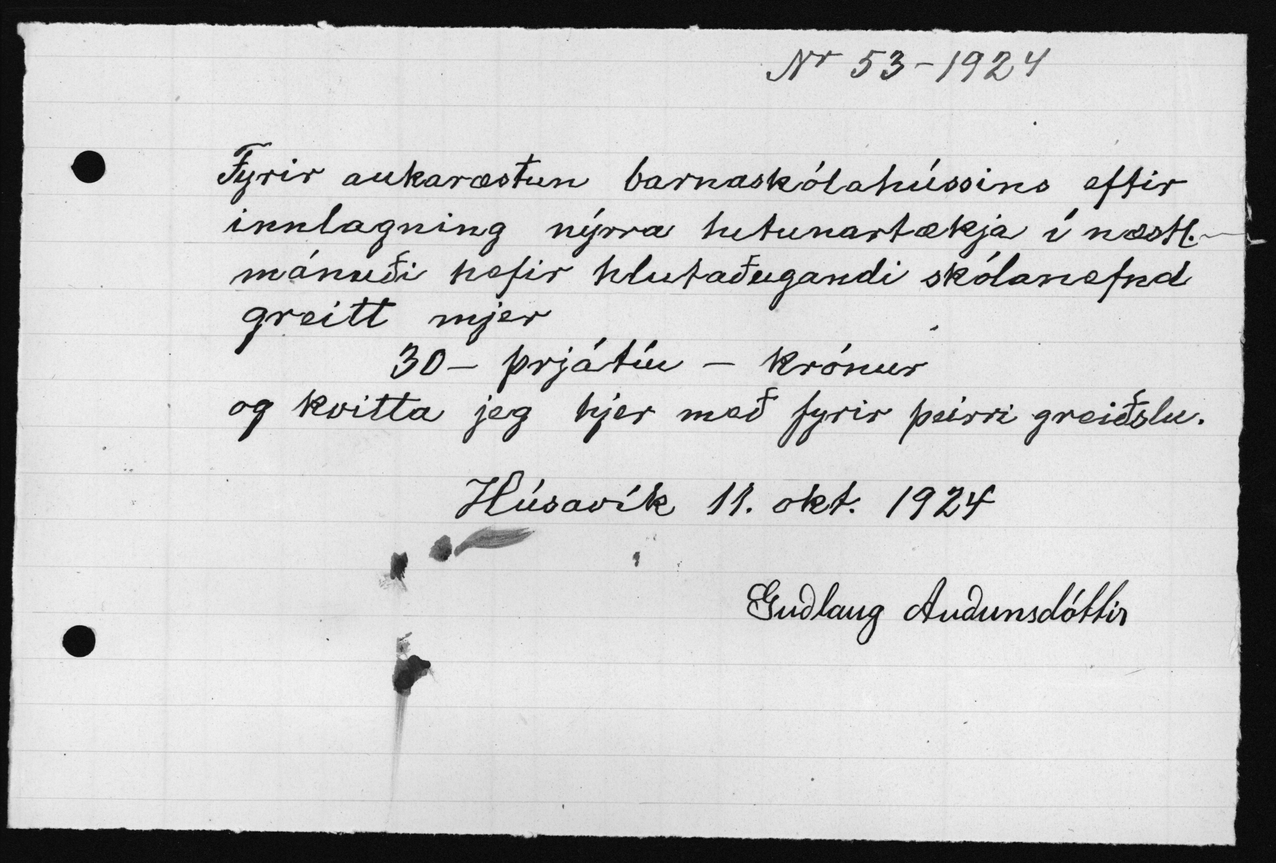 Nr 53-1924
Fyrir aukaræstun barnaskólahússins eftir
innlagning nýrra hitunartækja í næstl.
mánuði hefir hlutaðeigandi skólanefnd
greitt mjer
30- þrjátíu - krónur
og kvitta jeg hjer með fyrir þeirri greiðslu.
Húsavík 11. okt. 1924
Guðlaug Auðunsdóttir